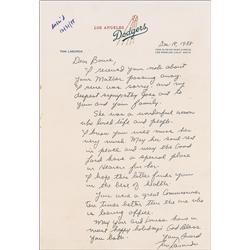 LOS ANGELES
Dodgers
TOM LASORDA
Dec 19, 1988
Dear Bowie,
I received your note about
your Mother passing away.
I was sorry, and my
deepest sympathy goes out to
you and your family.
She was a wonderful woman
who loved life and people.
I know you will miss her
very much. May her soul rest
in peace and may the Good
Lord have a special place
in Heaven for her.
I hope this letter finds you
in the best of Health.
You were a great Commissioner
Ten times better than the one who
is leaving office.
May you and Louisa have a
most happy holidays. God Bless
You both.
Your friend
Tom Lasorda